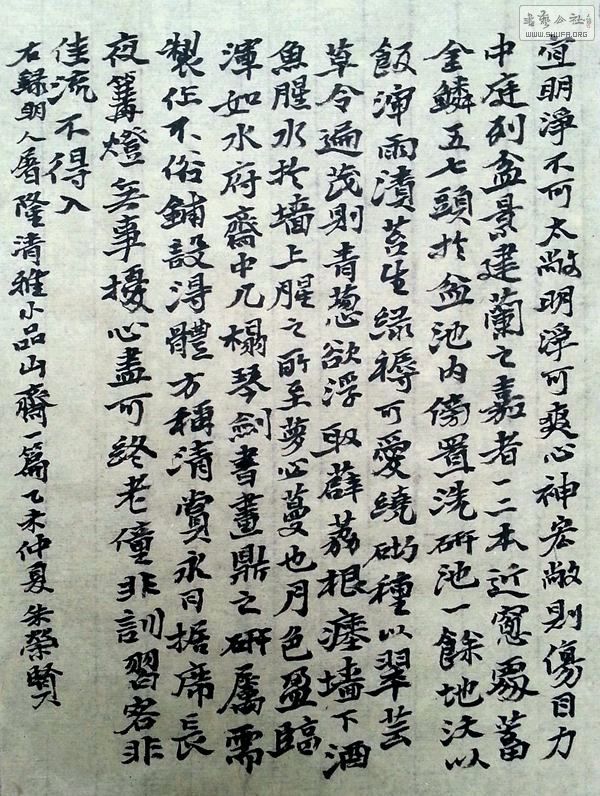 宜明淨不可太敞明淨可爽心神宏敞則傷目力
中庭列盆景建蘭之嘉者一二本近窓處蓄
金鱗五七頭於盆池内傍置洗研池一餘地沃以
飯渖雨漬苔生緑褥可愛繞砌種以翠芸
草令遍茂則青蔥欲浮取薜荔根瘞墻下洒
魚腥水於墻上腥之所至蘿必蔓也月色盈臨
渾如水府齋中几榻琴劍書畫鼎之研屬需
製作不俗鋪設得體方稱清賞永日据席長
夜篝燈無事擾心盡可終老僮非訓習客非
佳流不得入
右録明人屠隆清雅小品山齋一篇乙未仲夏朱榮賢
書藝公社
WWW.SHUFA.ORG